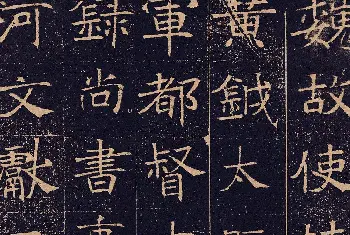 魏故使
黄鉞太
軍都督
録尚書
河文獻